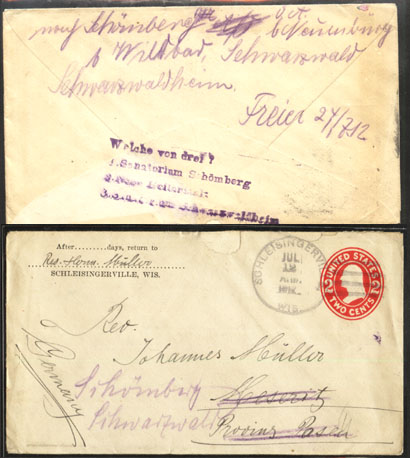 nach Schömberg O.A. Neuenbürg
b Wildbad, Schwarzwald
Schwarzwaldheim.
Freier 24/7 12
Welche von drei?
1. Sanatorium Schömberg
After..........days, return to
Rev. Herm. Müller
SCHLEISINGERVILLE, WIS.
SCHLEISINGERVILLE
JUL
12
WIS.
UNITED STATES
2 2
TWO CENTS
Rev.
Johannes Müller
Schömberg Meseritz
Schwarzwald Provinz Posen
Germany